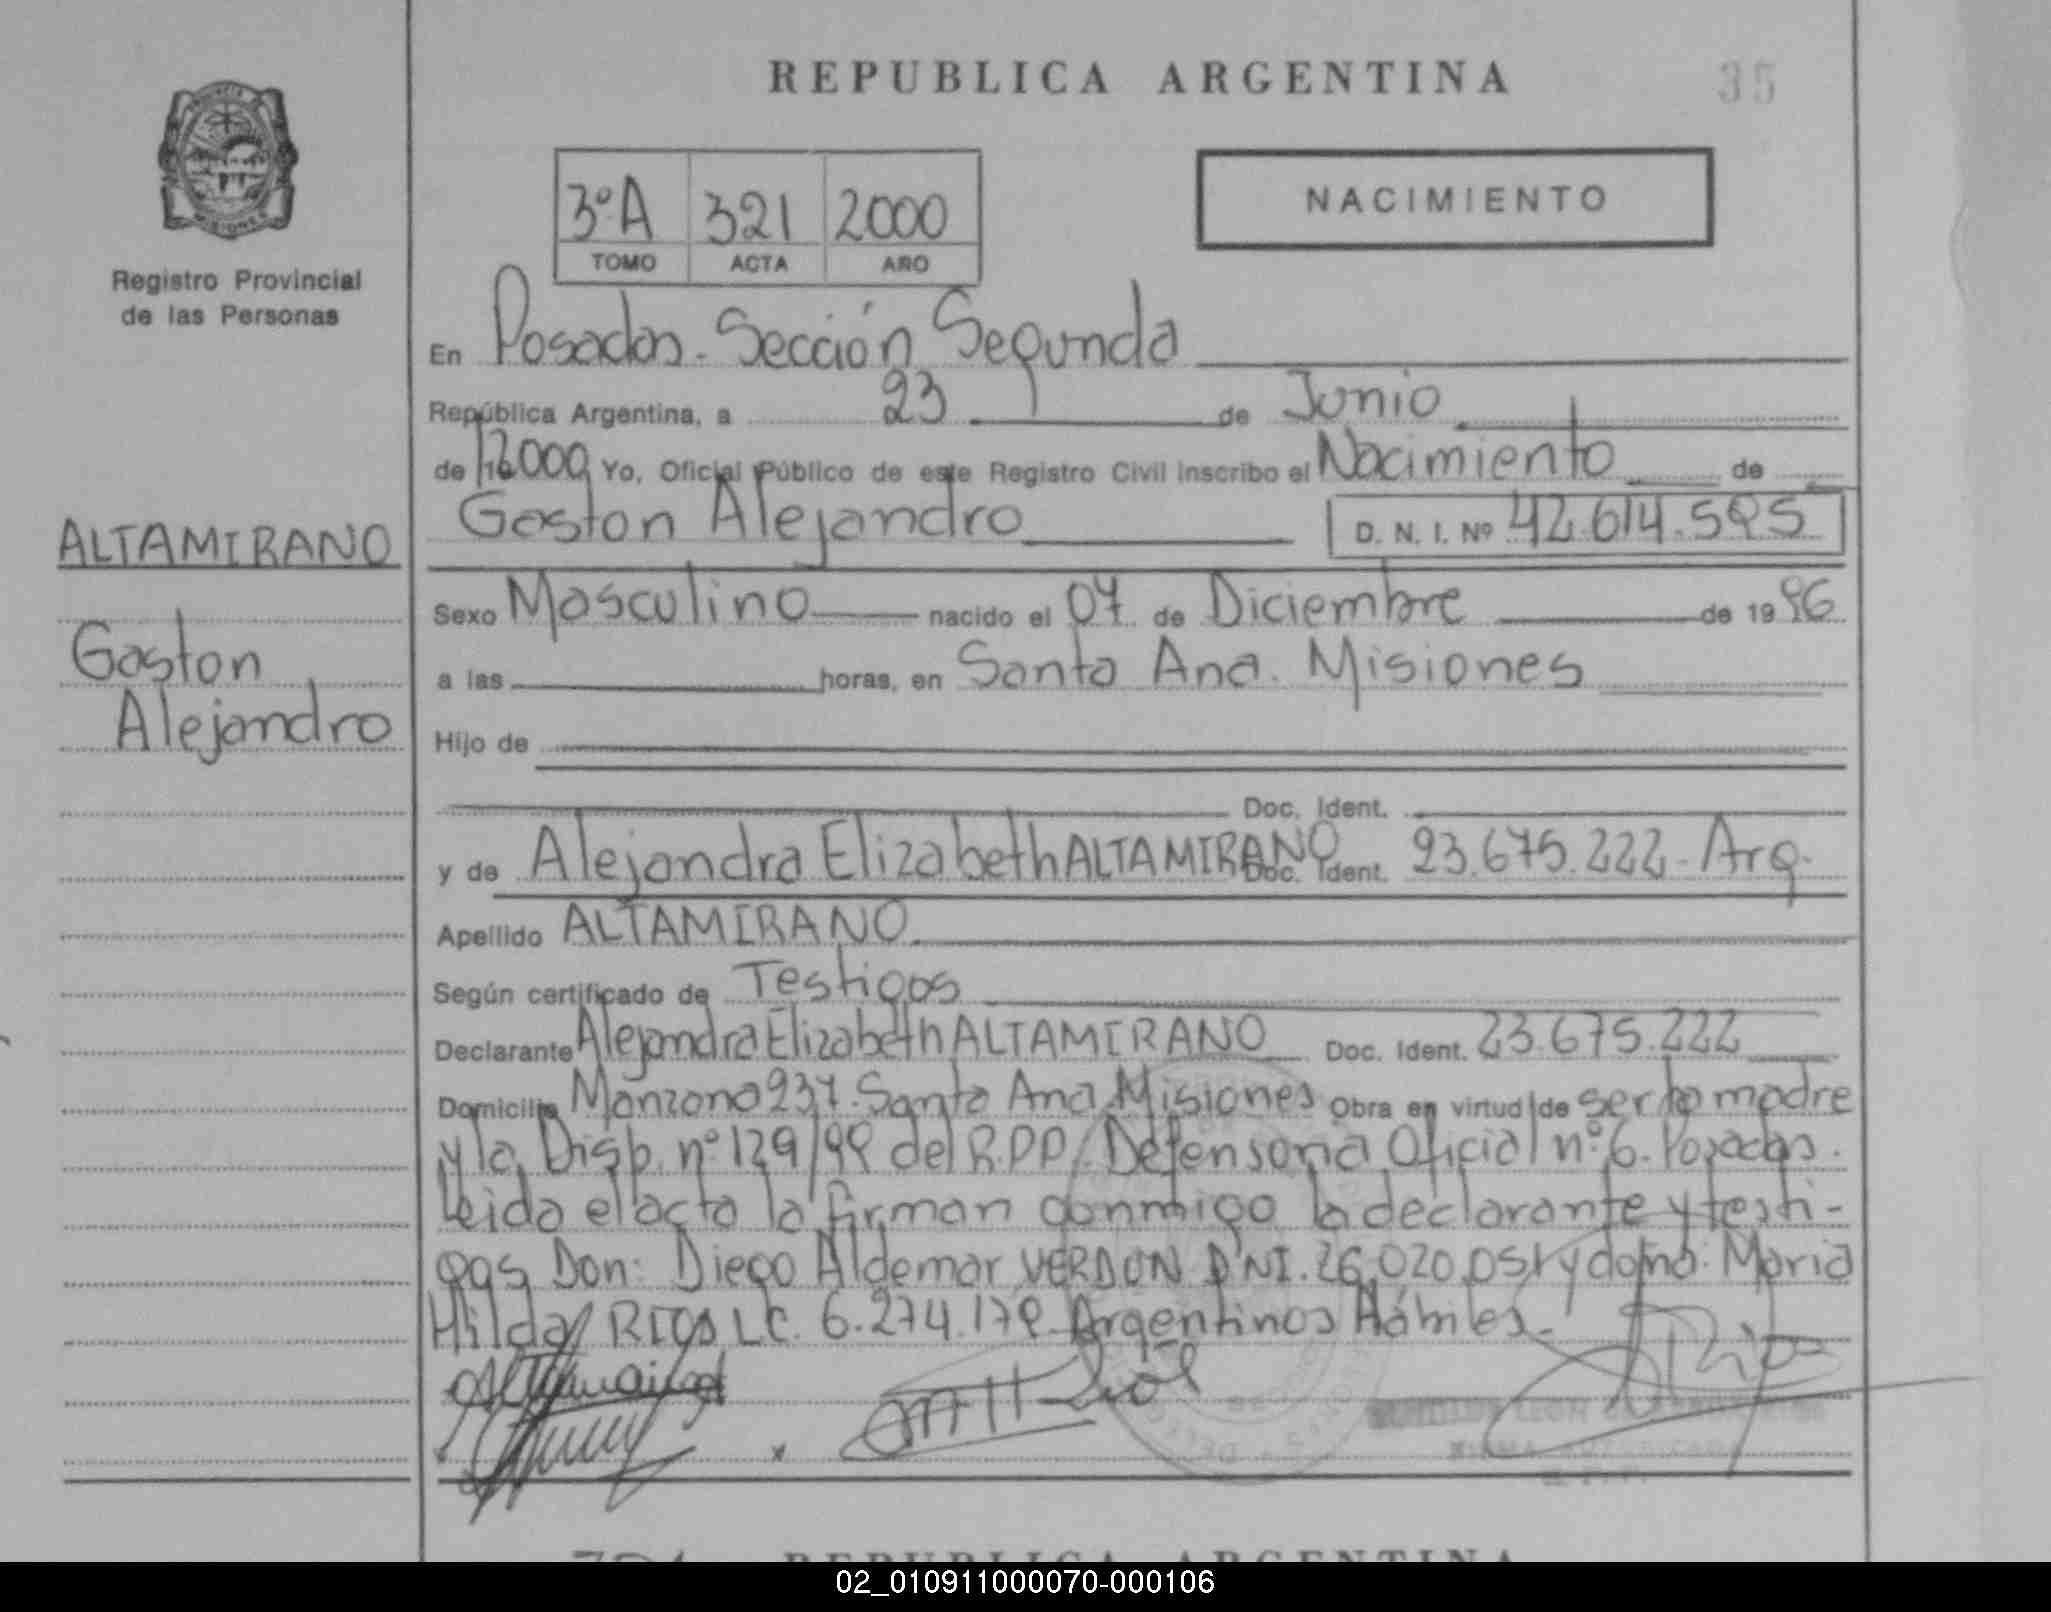 REPUBLICA ARGENTINA
35
NACIMIENTO
3º A 321 2000
TOMO ACTA AÑO
Registro Provincial
de las Personas
En Posadas - Sección Segunda
República Argentina, a 23 de Junio
de 2000 Yo, Oficial Público de este Registro Civil inscribo el Nacimiento de
Gaston Alejandro D. N. I. Nº 42.614.595
ALTAMIRANO
Gaston
Alejandro
Sexo Masculino nacido el 07 de Diciembre de 1996
a las horas, en Santa Ana. Misiones
Hijo de
Doc. Ident.
y de Alejandra Elizabeth ALTAMIRANO Doc. Ident. 23.675.222 - Arg.
Apellido ALTAMIRANO
Según certificado de Testigos
Declarante Alejandra Elizabeth ALTAMIRANO Doc. Ident. 23.675.222
Domicilio Manzana 237. Santa Ana Misiones Obra en virtud de ser la madre
y la Disp. nº 129/99 del R.P.P. Defensoria Oficial nº 6. Posadas.
Leida el acta la firman conmigo la declarante y testi-
gos Don: Diego Aldemar VERDUN DNI. 26.020.051 y doña: Maria
Hilda RIOS LC. 6.274.179 Argentinos Hábiles.
REPUBLICA ARGENTINA
02_010911000070-000106